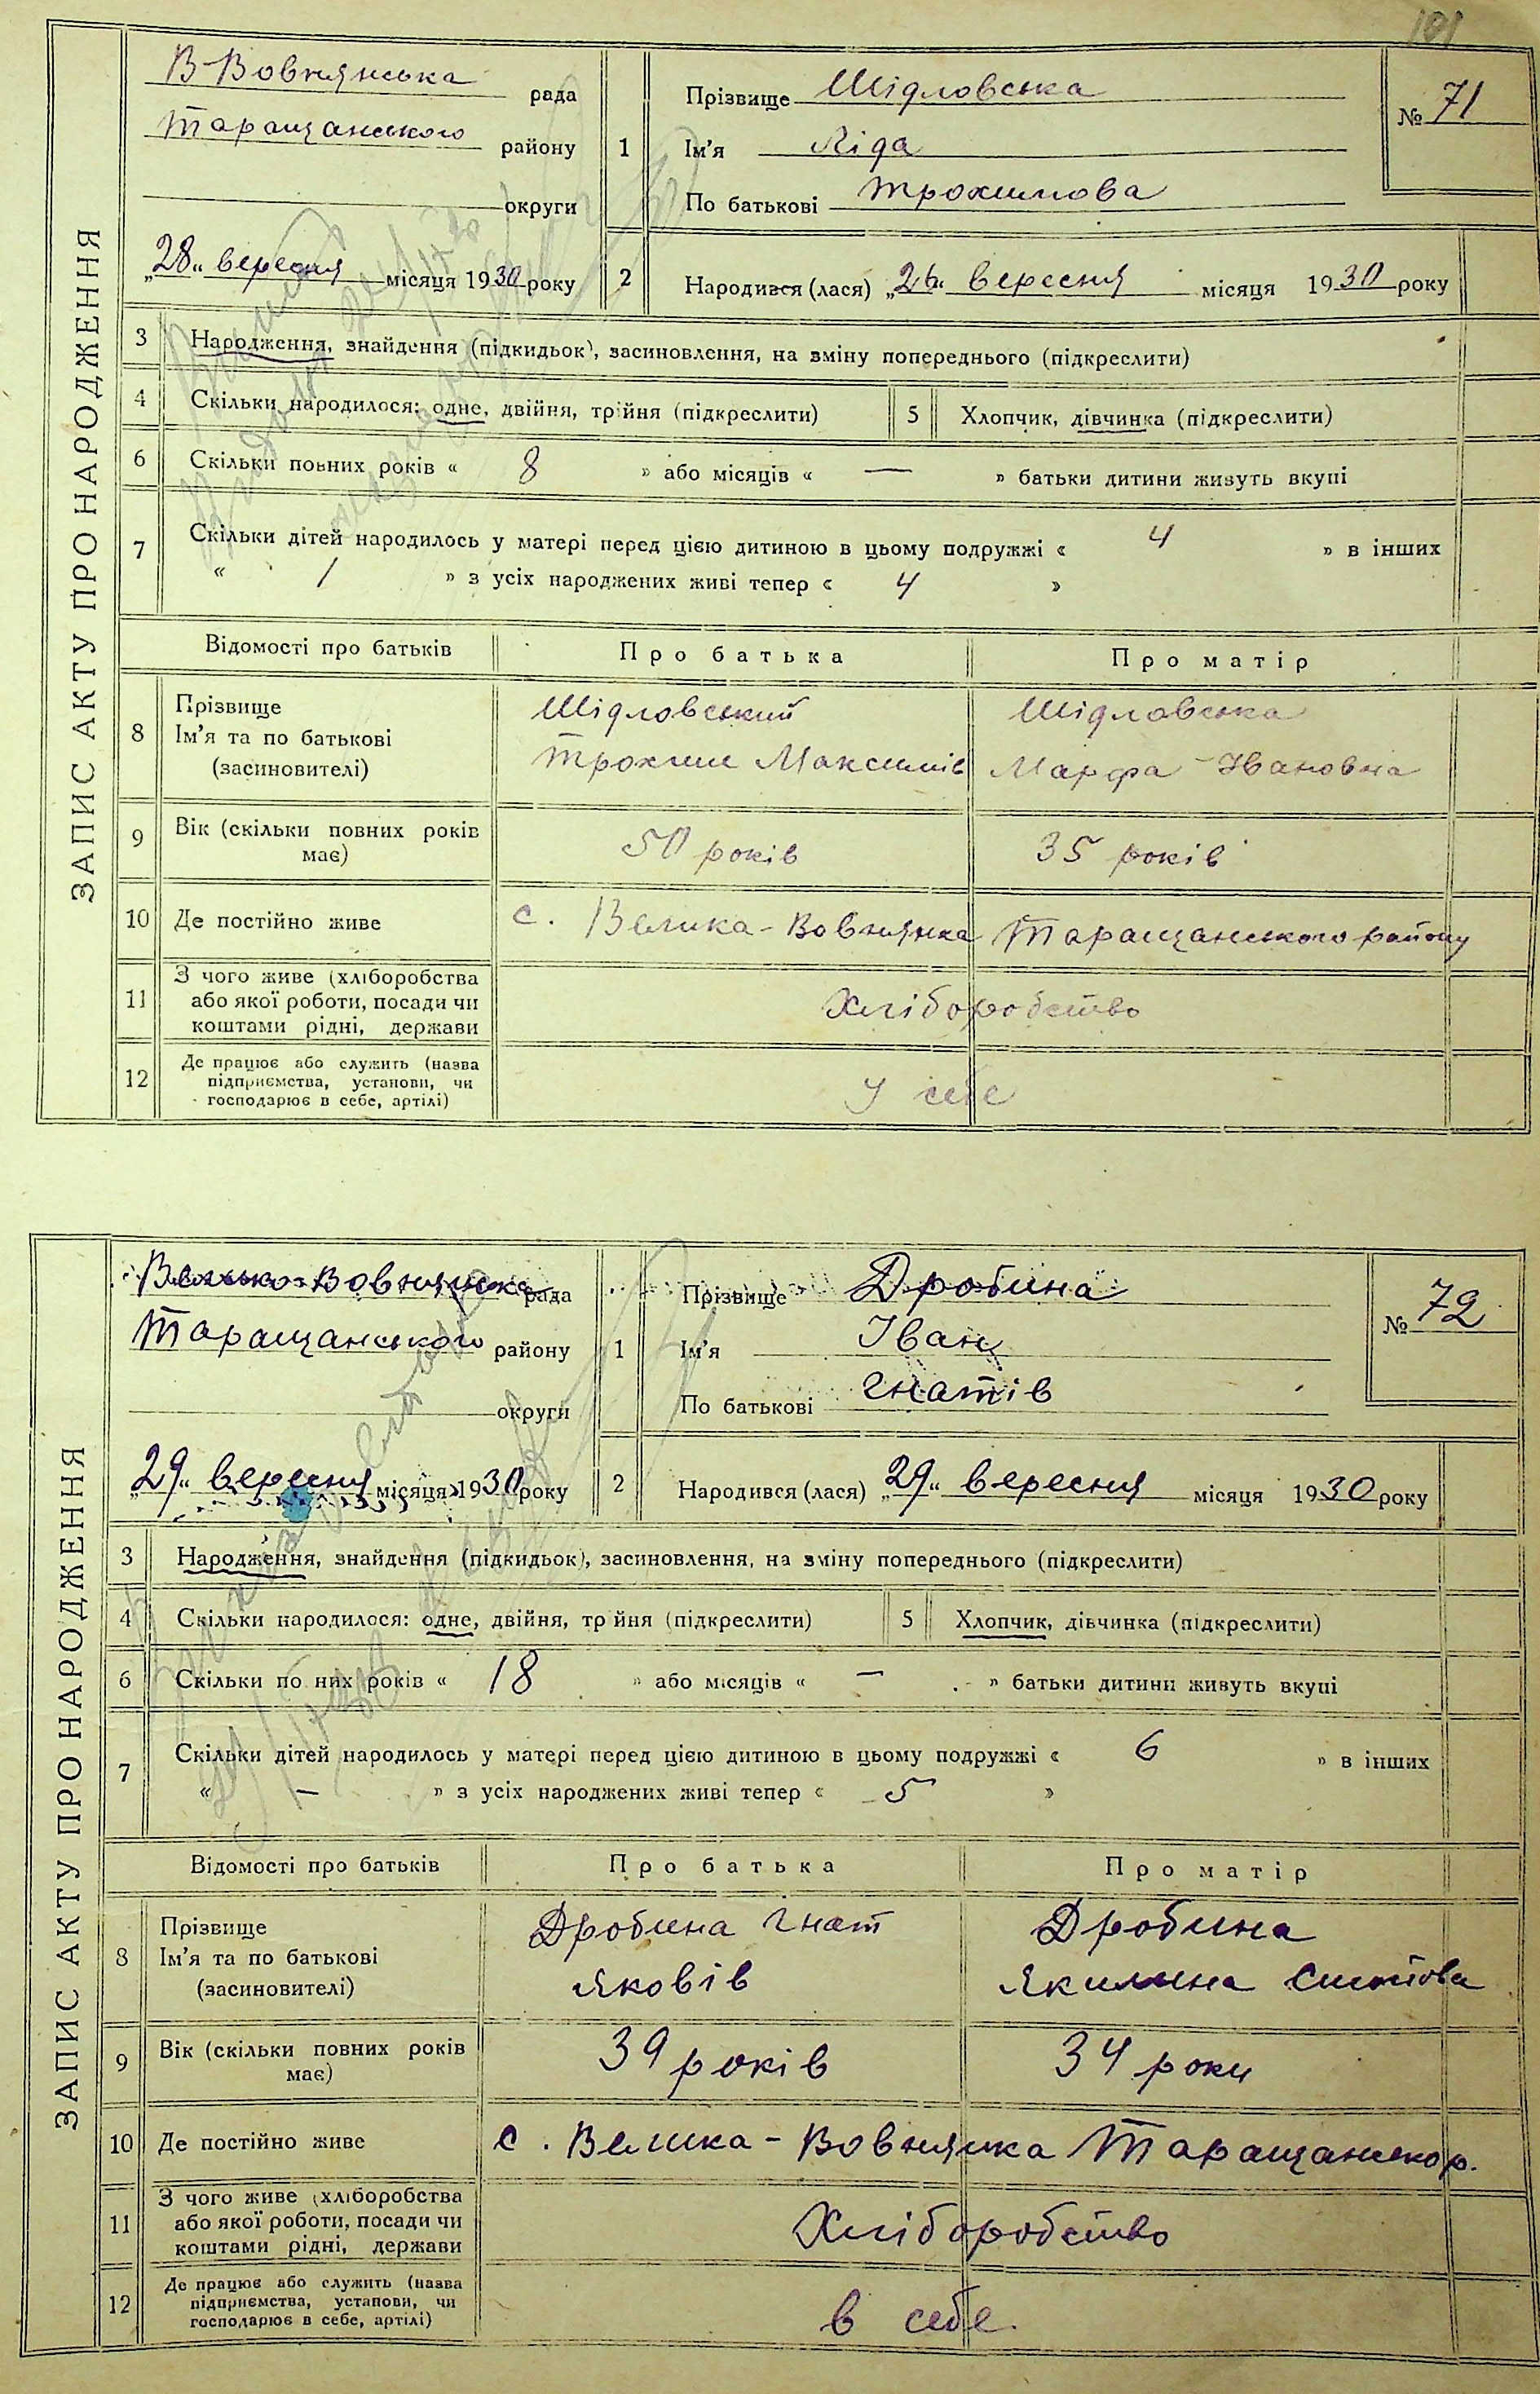 101
ЗАПИС АКТУ ПРО НАРОДЖЕННЯ
В-Вовнянська рада
Таращанського району
округи
„28“ вересня місяця 1930 року
1 Прізвище Шідловська
Ім'я Ліда
По батькові Трохимова
№ 71
2 Народився (лася) „26“ вересня місяця 1930 року
3 Народження, знайдення (підкидьок), засиновлення, на зміну попереднього (підкреслити)
4 Скільки народилося: одне, двійня, трійня (підкреслити) 5 Хлопчик, дівчинка (підкреслити)
6 Скільки повних років « 8 » або місяців « — » батьки дитини живуть вкупі
7 Скільки дітей народилось у матері перед цією дитиною в цьому подружжі « 4 » в інших
« 1 » з усіх народжених живі тепер « 4 »
Відомості про батьків Про батька Про матір
8 Прізвище Ім'я та по батькові (засиновителі)
Шідловський Шідловська
Трохим Максимів Марфа Івановна
9 Вік (скільки повних років має) 50 років 35 років
10 Де постійно живе с. Велика-Вовнянка Таращанського району
11 З чого живе (хліборобства або якої роботи, посади чи коштами рідні, держави Хліборобство
12 Де працює або служить (назва підприємства, установи, чи господарює в себе, артілі) У себе
ЗАПИС АКТУ ПРО НАРОДЖЕННЯ
Велико-Вовнянська рада
Таращанського району
округи
„29“ вересня місяця 1930 року
1 Прізвище Дробина
Ім'я Іван
По батькові Гнатів
№ 72
2 Народився (лася) „29“ вересня місяця 1930 року
3 Народження, знайдення (підкидьок), засиновлення, на зміну попереднього (підкреслити)
4 Скільки народилося: одне, двійня, тр йня (підкреслити) 5 Хлопчик, дівчинка (підкреслити)
6 Скільки по них років « 18 » або місяців « — » батьки дитини живуть вкупі
7 Скільки дітей народилось у матері перед цією дитиною в цьому подружжі « 6 » в інших
« — » з усіх народжених живі тепер « 5 »
Відомості про батьків Про батька Про матір
8 Прізвище Ім'я та по батькові (засиновителі)
Дробина Гнат Дробина
Яковів Якилина
9 Вік (скільки повних років має) 39 років 34 роки
10 Де постійно живе с. Велика-Вовнянка Таращанськ р.
11 З чого живе (хліборобства або якої роботи, посади чи коштами рідні, держави Хліборобство
12 Де працює або служить (назва підприємства, установи, чи господарює в себе, артілі) в себе.